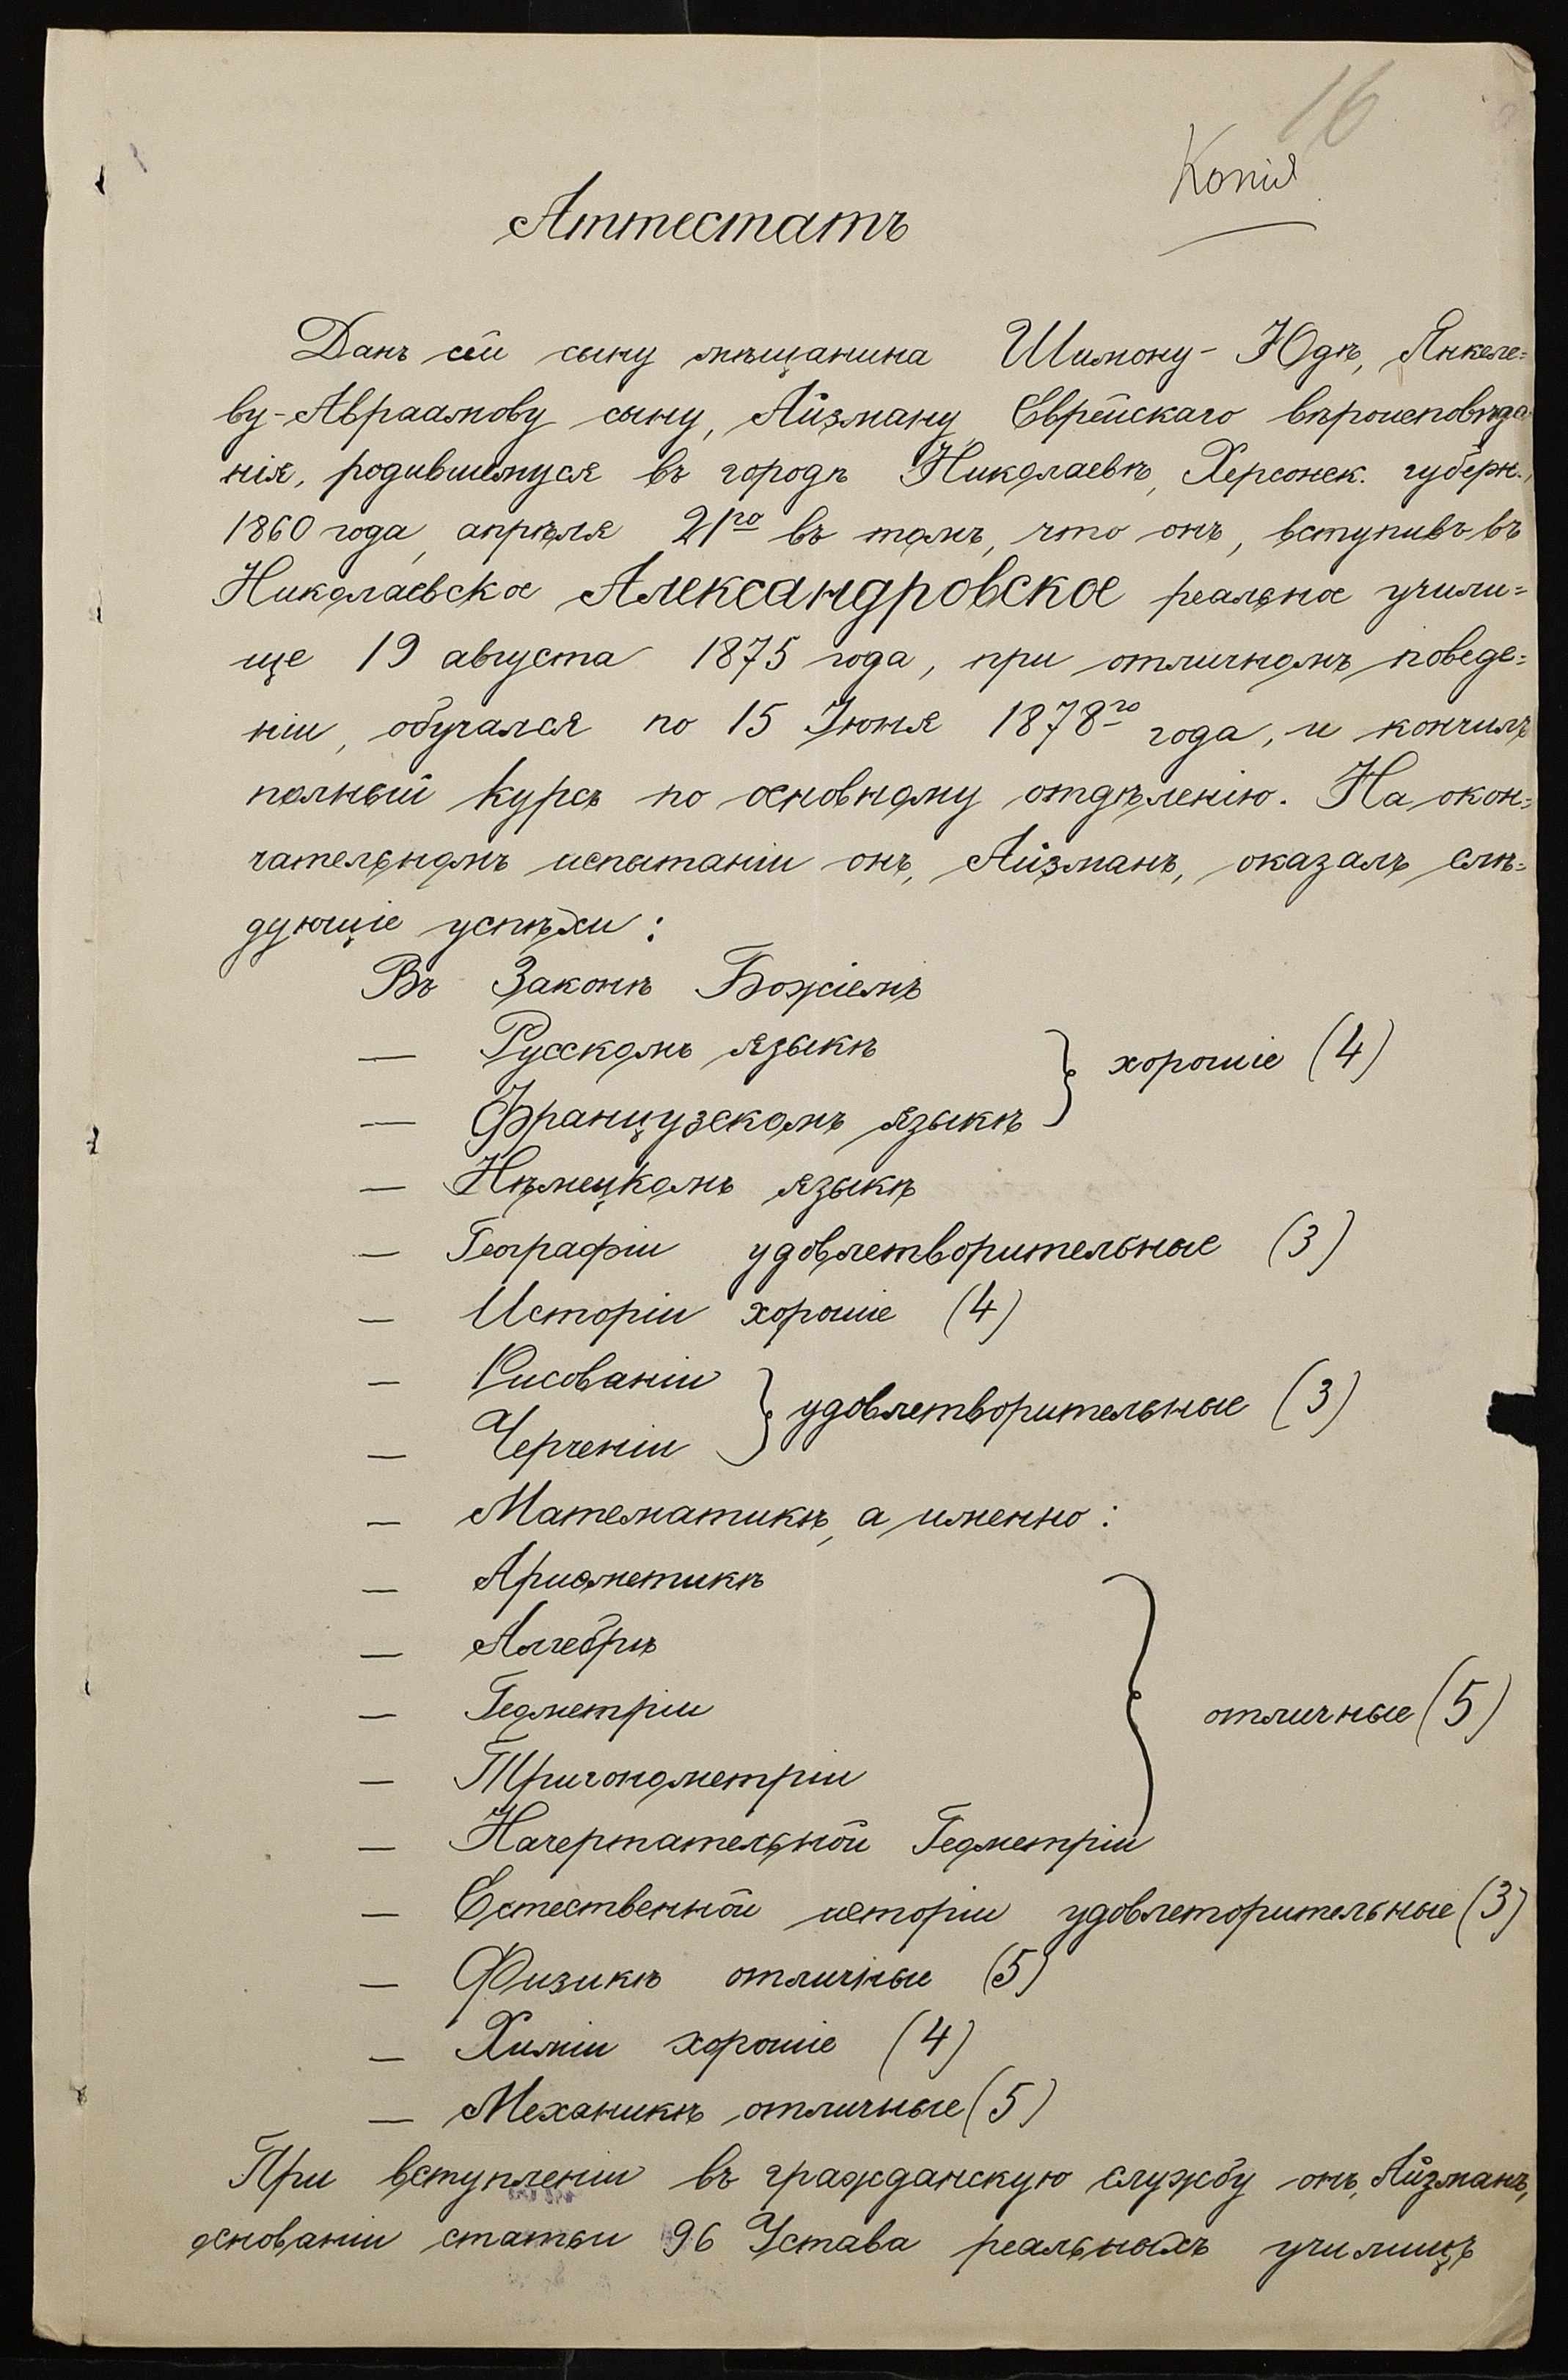 16
Копія
Аттестатъ
Данъ сей сыну мѣщанина Шимону-Юдѣ, Янкеле=
ву-Авраамову сыну, Айзману, Еврейскаго вѣроисповѣда
нія, родившемуся въ городѣ Николаевѣ, Херсонск. губерн.,
1860 года, апрѣля 21го въ томъ, что онъ, вступивъ въ
Николаевское Александровское реальное учили=
ще 19 августа 1875 года, при отличномъ поведе=
ніи, обучался по 15 Іюня 1878го года, и кончилъ
полный курсъ по основному отдѣленію. На окон=
чательномъ испытаніи онъ, Айзманъ, оказалъ слѣ=
дующіе успѣхи:
Въ Законѣ Божіемъ
— Русскомъ языкѣ } хорошіе (4)
— Французскомъ языкѣ
— Нѣмецкомъ языкѣ
— Географіи удовлетворительные (3)
— Исторіи хорошіе (4)
— Рисованіи } удовлетворительные (3)
— Черченіи
— Математикѣ, а именно:
— Ариѳметикѣ
— Алгебрѣ
— Геометріи } отличные (5)
— Тригонометріи
— Начертательной Геометріи
— Естественной исторіи удовлеторительные (3)
— Физикѣ отличные (5)
— Химіи хорошіе (4)
— Механикѣ отличные (5)
При вступленіи въ гражданскую службу онъ, Айзманъ,
основаніи статьи 96 Устава реальныхъ училищъ